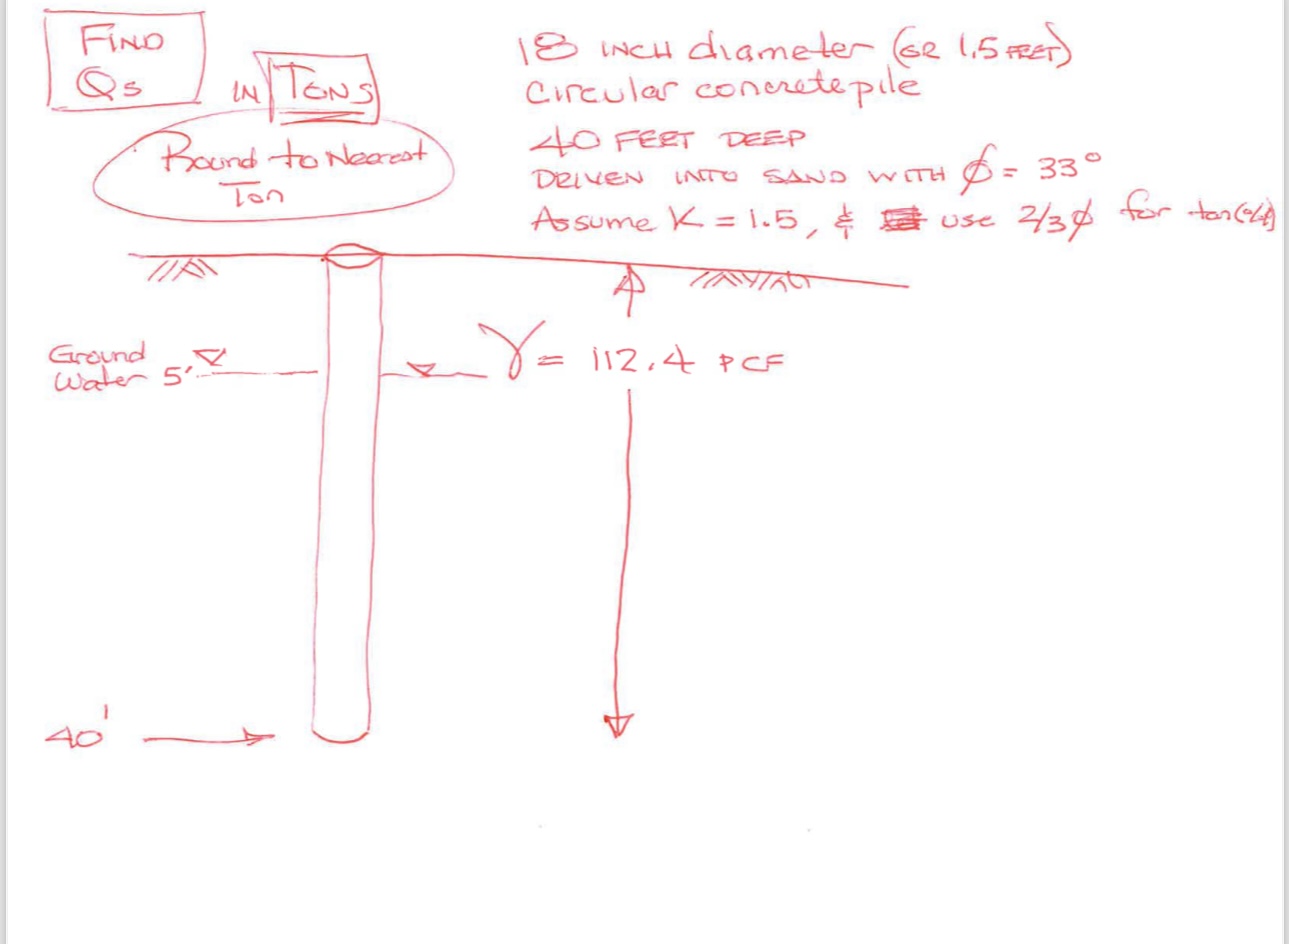 FIND
Qs
IN TONS
Round to Nearest
Ton
18 INCH diameter (OR 1.5 FEET)
Circular concrete pile
40 FEET DEEP
DRIVEN INTO SAND WITH φ = 33°
Assume K = 1.5, & use 2/3φ for tan
Ground
Water 5'
γ = 112.4 PCF
40'